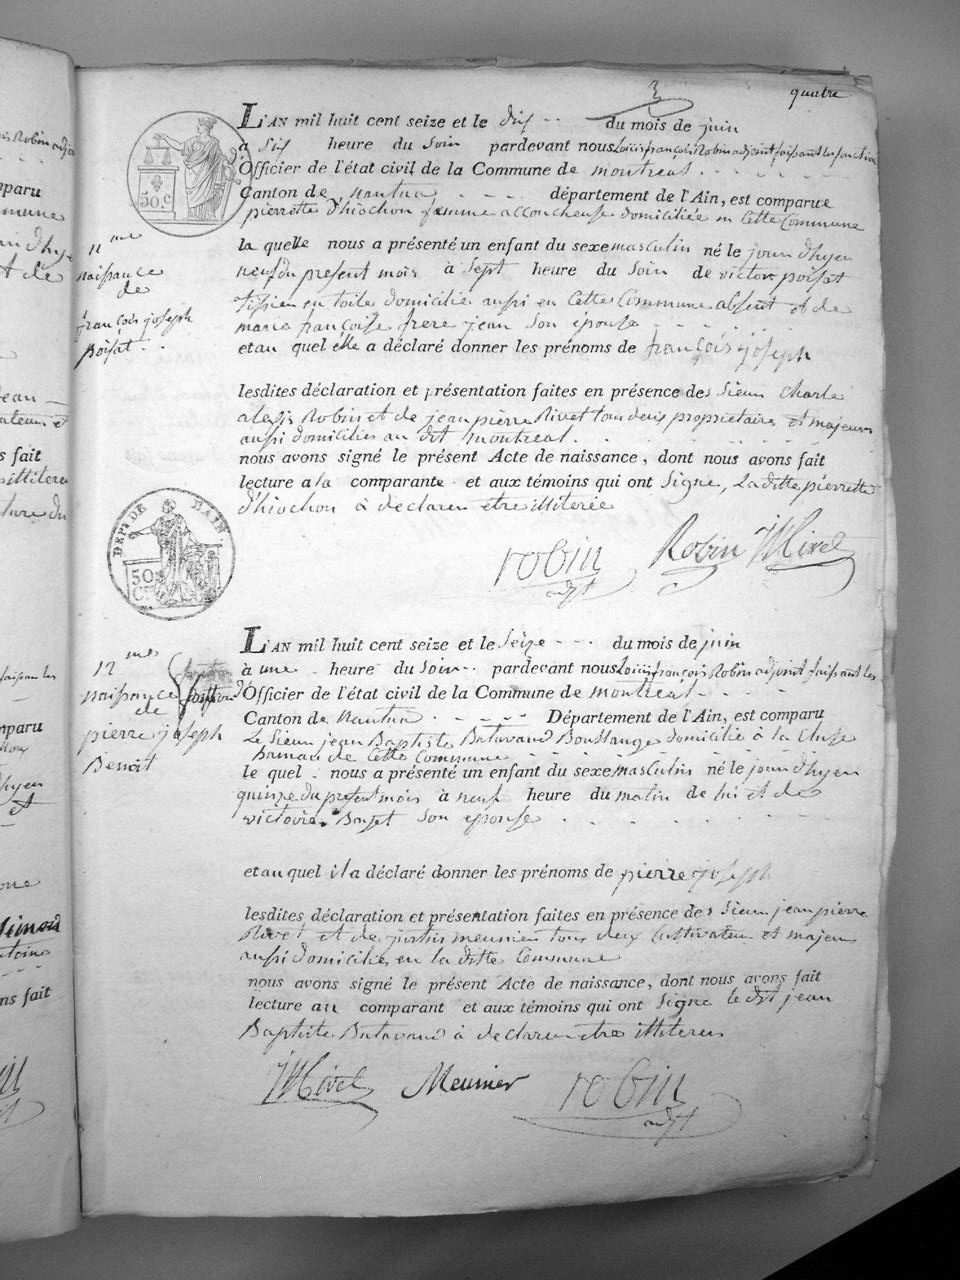 quatre
L'AN mil huit cent seize et le dix du mois de juin
à six heure du soir pardevant nous Louis françois Robin adjoint faisant les fonction
Officier de l'état civil de la Commune de montreal
Canton de Nantua département de l'Ain, est comparue
pierrette d'hiochon femme accoucheuse domiciliée en cette Commune
la quelle nous a présenté un enfant du sexe masculin né le jour d'hyer
neuf du present mois à sept heure du soir de victor poisat
tissier en toile domicilié aussi en cette Commune absent et de
marie françoise frere jean son épouse
et au quel elle a déclaré donner les prénoms de françois joseph
lesdites déclaration et présentation faites en présence des sieurs Charle
alexis Robin et de jean pierre Rivet tous deux propriétaires et majeurs
aussi domiciliés au dit montreal.
nous avons signé le présent Acte de naissance, dont nous avons fait
lecture a la comparante et aux témoins qui ont signé, la ditte pierrette
d'hiochon à declaré etre illiterée
robin Robin JP Rivet
adjt
11me
naissance
de
françois joseph
poisat
50.c
DEPt. DE L'AIN.
50
C.
L'AN mil huit cent seize et le seize du mois de juin
à une heure du soir pardevant nous Louis françois Robin adjoint faisant les
Officier de l'état civil de la Commune de montreal
Canton de Nantua Département de l'Ain, est comparu
Le Sieur jean Baptiste Butavand Boullange domicilié à la Cluse
hameau de cette Commune
le quel nous a présenté un enfant du sexe masculin né le jour d'hyer
quinze du present mois à neuf heure du matin de lui et de
victoire son épouse
et au quel il a déclaré donner les prénoms de pierre joseph
lesdites déclaration et présentation faites en présence des sieurs jean pierre
Rivet et de justin meunier tous deux Cultivateur et majeur
aussi domiciliés en la ditte Commune
nous avons signé le présent Acte de naissance, dont nous avons fait
lecture au comparant et aux témoins qui ont signé le dit jean
Baptiste Butavand à declaré etre illiteré
JP Rivet Meunier robin
adjt
12me
naissance
de
pierre joseph
Benoit